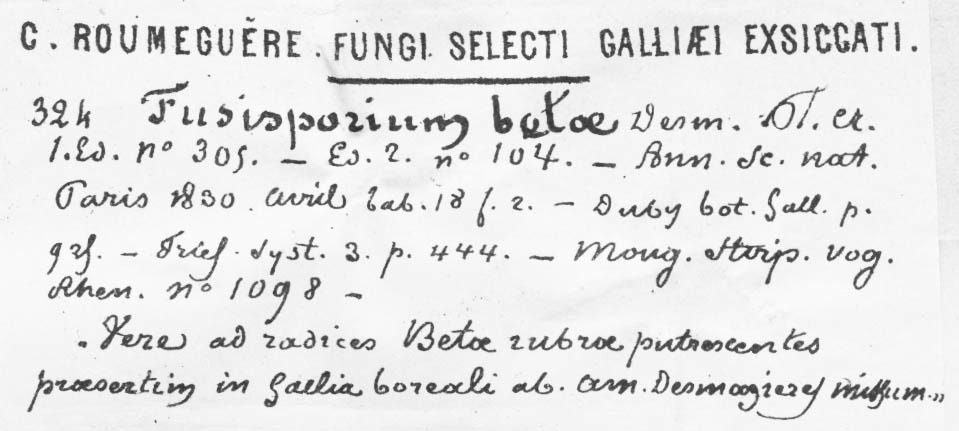 C. ROUMEGUĔRE. FUNGI SELECTI GALLIÆI EXSICCATI.
324 Fusisporium betæ Desm. Pl. cr.
1. Ed. nº 305. — Ed. 2. nº 104. — Ann. Sc. nat.
Paris 1830 avril tab. 18 f. 2. — Duby bot. Gall. p.
925. — Fries Syst. 3. p. 444. — Moug. Stirp. vog.
Rhen. nº 1098 —
Vere ad radices Betæ rubræ putrescentes
præsertim in Gallia boreali ab. am. Desmazieres missum.„